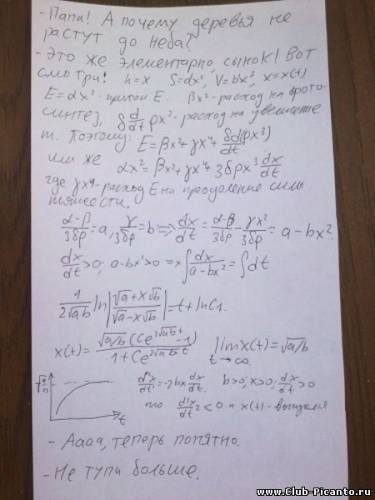 - Папа! А почему деревья не
растут до неба?
- Это же элементарно, сынок! Вот
смотри! h=x S=αx², V=bx³, x=x(t)
E=αx² - приток E. βx² - расход на фото-
синтез, δ d/dt ρx³ - расход на увеличение
m. Поэтому: E=βx²+γx⁴+δd(ρx³)/dt
или же αx²=βx²+γx⁴+3δρx² dx/dt
где γx⁴ - расход E на преодоление силы
тяжести.
(α-β)/3δρ=a, γ/3δρ=b => dx/dt = (α-β)/3δρ - γx²/3δρ = a-bx²
dx/dt>0; a-bx²>0 => ∫dx/(a-bx²) = ∫dt
1/(2√ab) ln|(√a+x√b)/(√a-x√b)| = t+lnC₁
x(t)= √a/b(Ce^(2√ab t)-1)/(1+Ce^(2√ab t)) lim x(t)=√a/b
t→∞
√a/b d²x/dt²=-2bx dx/dt. b>0; x>0; dx/dt>0
t то d²x/dt²<0 и x(t) - выпуклая
- Аааа, теперь понятно.
- Не тупи больше.
www.Club-Picanto.ru